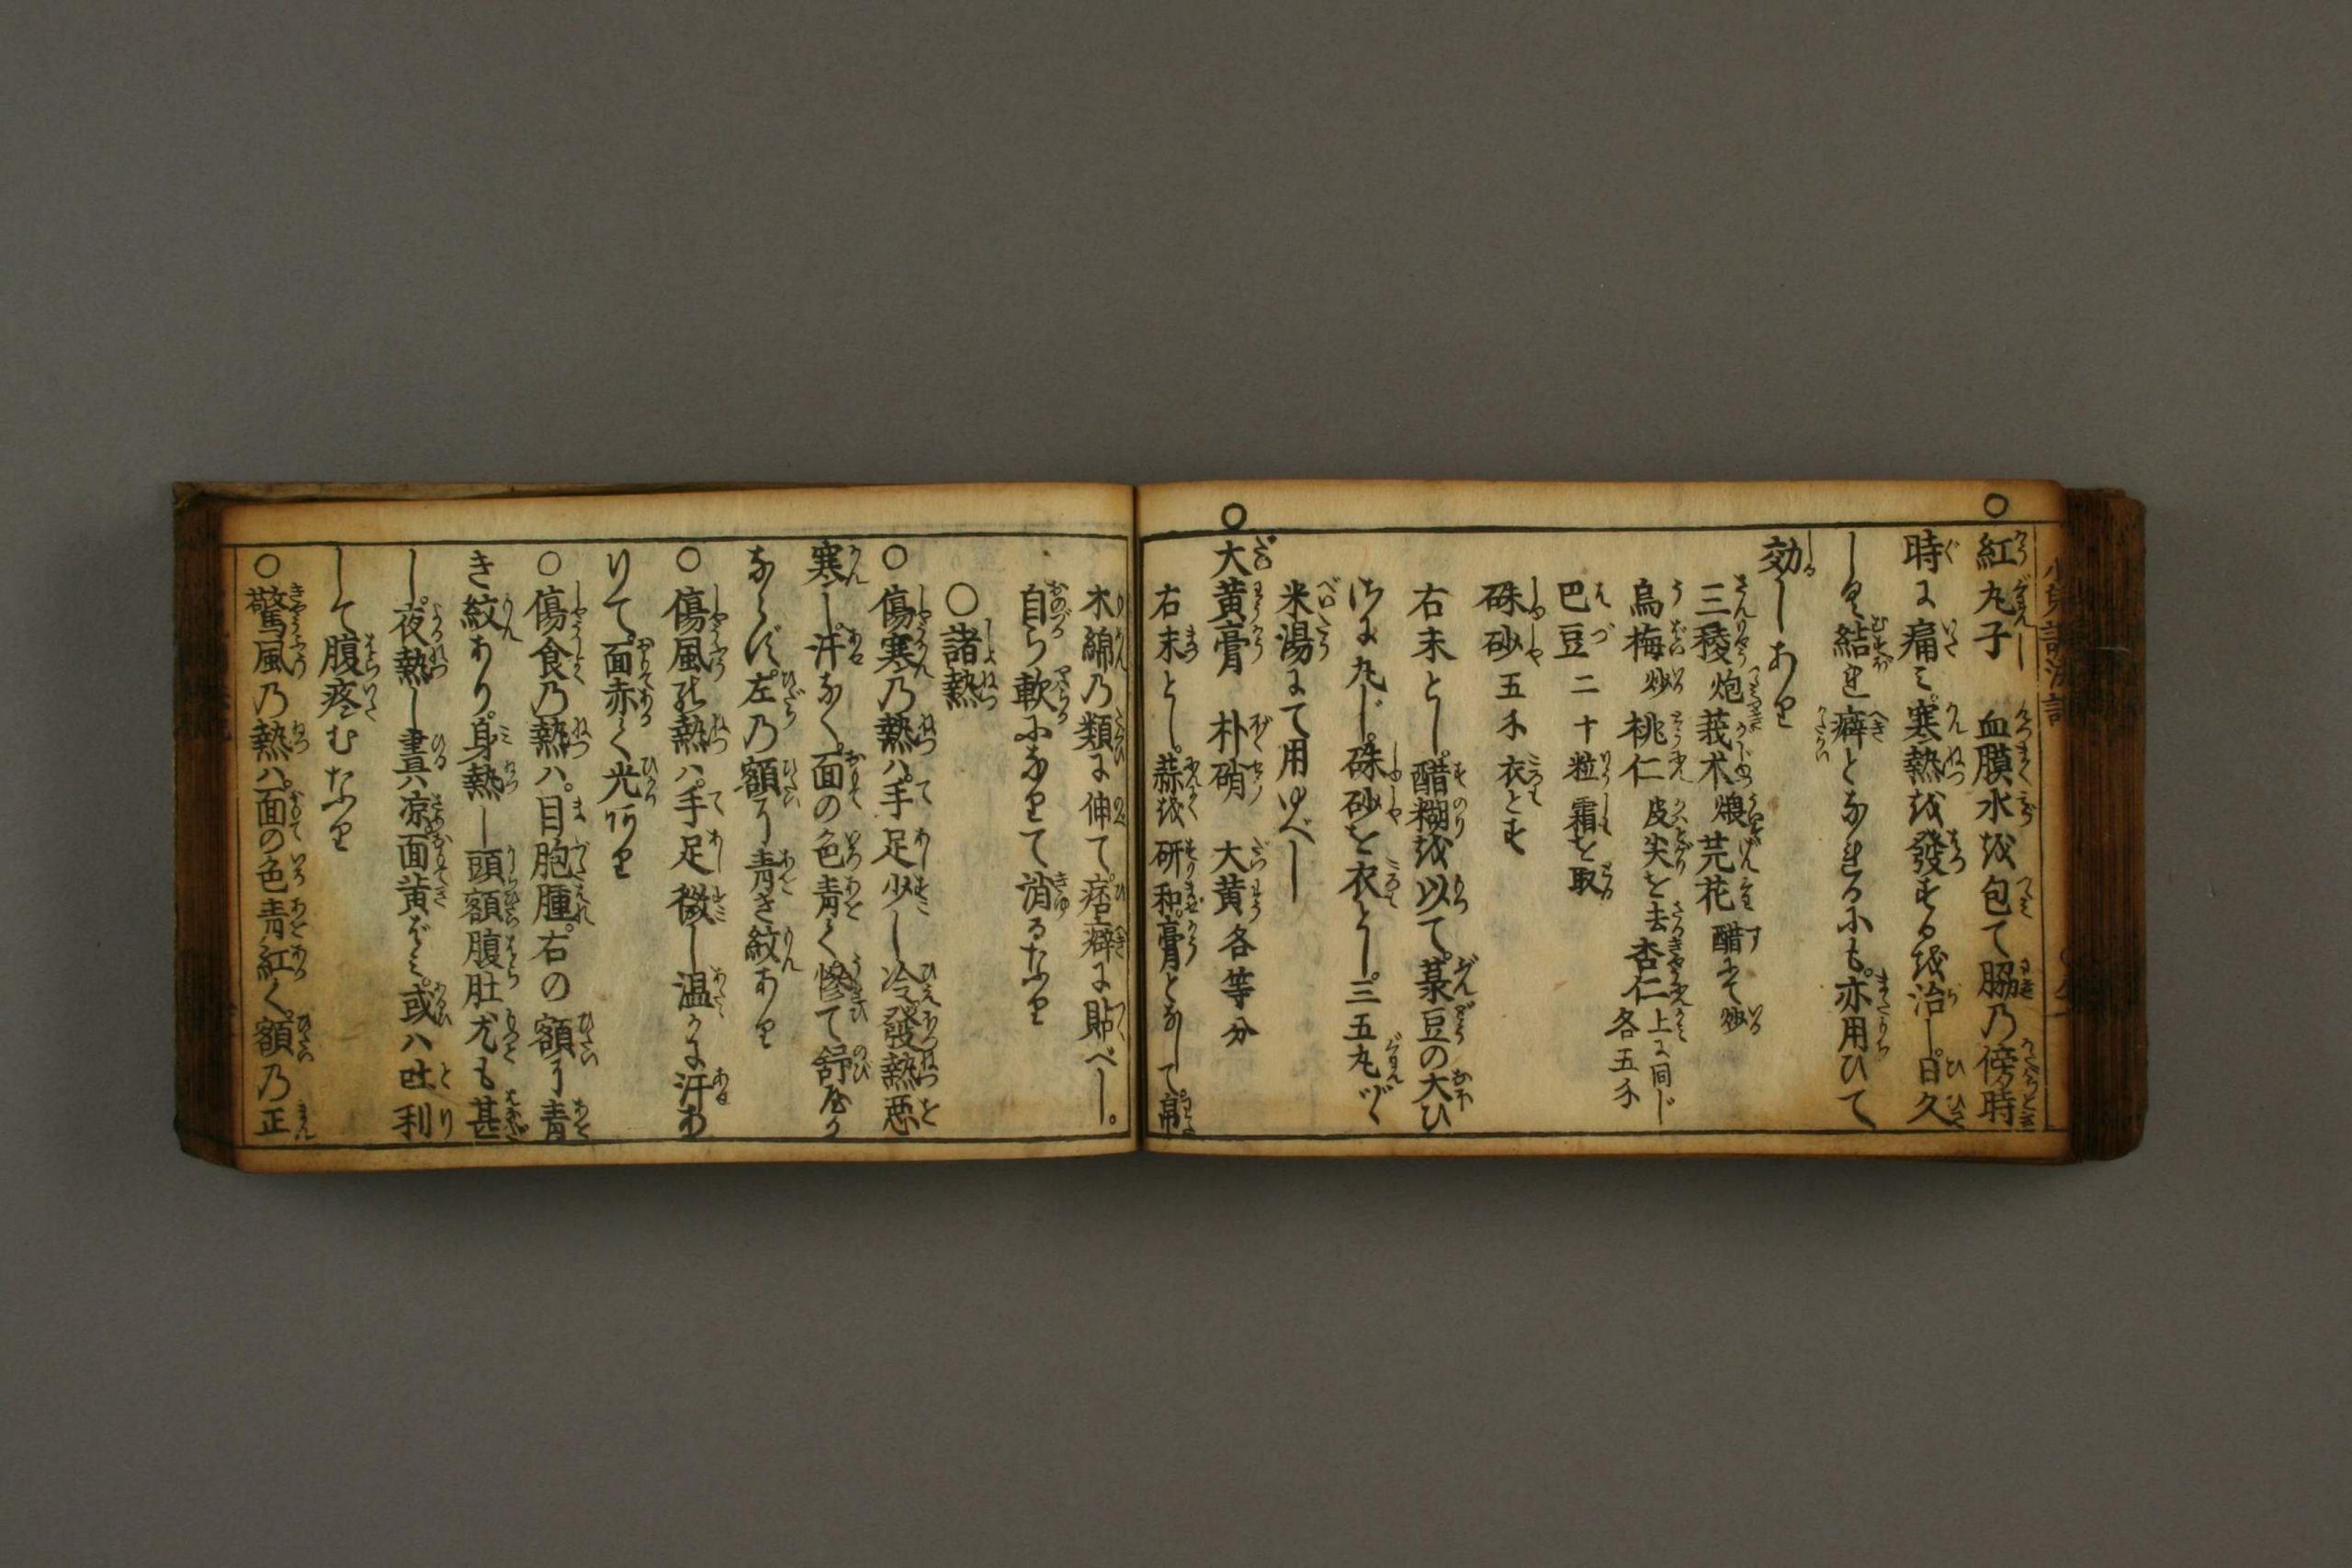 ○紅丸子 血膜水を包て脇乃傍時
時に痛み。寒熱を發する越治し。日久
しく結れ癖となれるにも。亦用ひて
効しあり
三稜炮 莪朮煨 芫花醋にて炒
烏梅炒 桃仁皮尖を去 杏仁上に同じ 各五匁
巴豆二十粒霜を取
硃砂五匁衣とす
右末とし。醋糊を以て。菉豆の大ひ
さに丸じ。硃砂を衣とし。三五丸づゝ
米湯にて用ゆべし
○大黄膏 朴硝 大黄各等分
右末とし。蒜を研和。膏となして。帛
木綿乃類に伸て。痞癖に貼べし。
自ら軟になりて消るなり
○諸熱
○傷寒乃熱ハ。手足少し冷。發熱惡
寒し。汗なく。面の色青く。惨て舒やか
ならず。左乃額に青き紋あり
○傷風の熱ハ。手足微し温かに汗あ
りて。面赤く光りあり
○傷食乃熱ハ。目胞腫。右の額に青
き紋あり。身熱し頭額腹肚尤も甚
し。夜熱し晝ハ凉。面黄ばみ。或ハ吐利
して腹疼むなり
○驚風乃熱ハ。面の色青紅く。額乃正